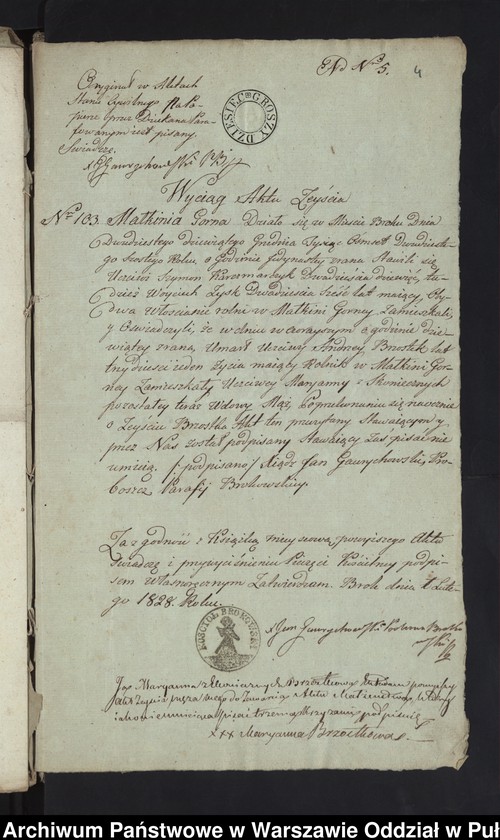 Ad Nr 5. 4
Oryginał w Aktach
Stanu Cywilnego na Pa-
pierze przez Dziekana Para-
fowanym jest pisany
Świadczę.
X J Gaurychowski
DZIESIĘĆ GROSZY
Wyciąg Aktu Zeyścia
Nr 103 Małkinia Gorna Działo się w Mieście Broku Dnia
Dwudziestego dziewiątego Grudnia Tysiąc Osmset Dwudzieste-
go szostego Roku, o Godzinie Jedynastey zrana Stawili się
Uczciwi Szymon Kaczmarczyk Dwadzieścia dziewięć, tu-
dzież Woyciech Zysk Dwadzieścia Sześć lat maiący, Oby-
dwa Włościanie rolni w Małkini Gorney Zamieszkali,
y Oświadczyli, że w dniu wczorayszym o godzinie dzie-
wiątey zrana, Umarł Uczciwy Andrzey Brzostek lat
trzydzieści ieden Życia maiący Rolnik w Małkini Gor-
ney Zamieszkały Uczciwey Maryanny z Skoniecznych
pozostałey teraz Wdowy Mąż, Poprzekonaniu się naocznie
o Zeyściu Brzostka Akt ten przeczytany Stawaiącym y
przez Nas został podpisany Stawaiący zaś pisać nie
umieią. /podpisano/ Xiądz Jan Gaurychowski Pro-
boszcz Parafij Brokowskiey.
Za zgodność z Księgą mieyscową, powyższego Aktu
świadczę i przyciśnieniem Pieczęci Kościelney podpi-
sem własnoręcznym Zatwierdzam. Brok dnia 1 Lute-
go 1828 Roku.
KOSCIOŁ BROKOWSKI
X Jan Gaurychowski
Ja Maryanna z Skoniecznych Brzostkowa
Akt Zeyścia męża mego do Zawarcia Aktu Małżeństwa
iako nieumieiąca pisać trzema Krzyżami podpisuię
xxx Maryanna Brzostkowa
Archiwum Państwowe w Warszawie Oddział w Puł